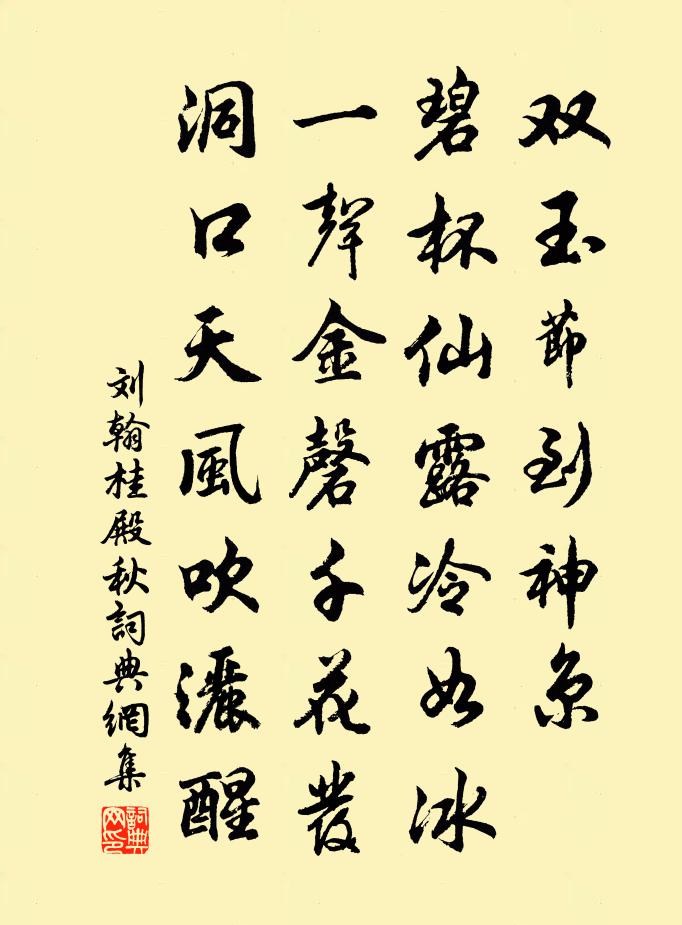 双玉節到神京
碧杯仙露冷如冰
一聲金磬千花發
洞口天風吹灑醒
刘翰桂殿秋詞典網集
詞典網印